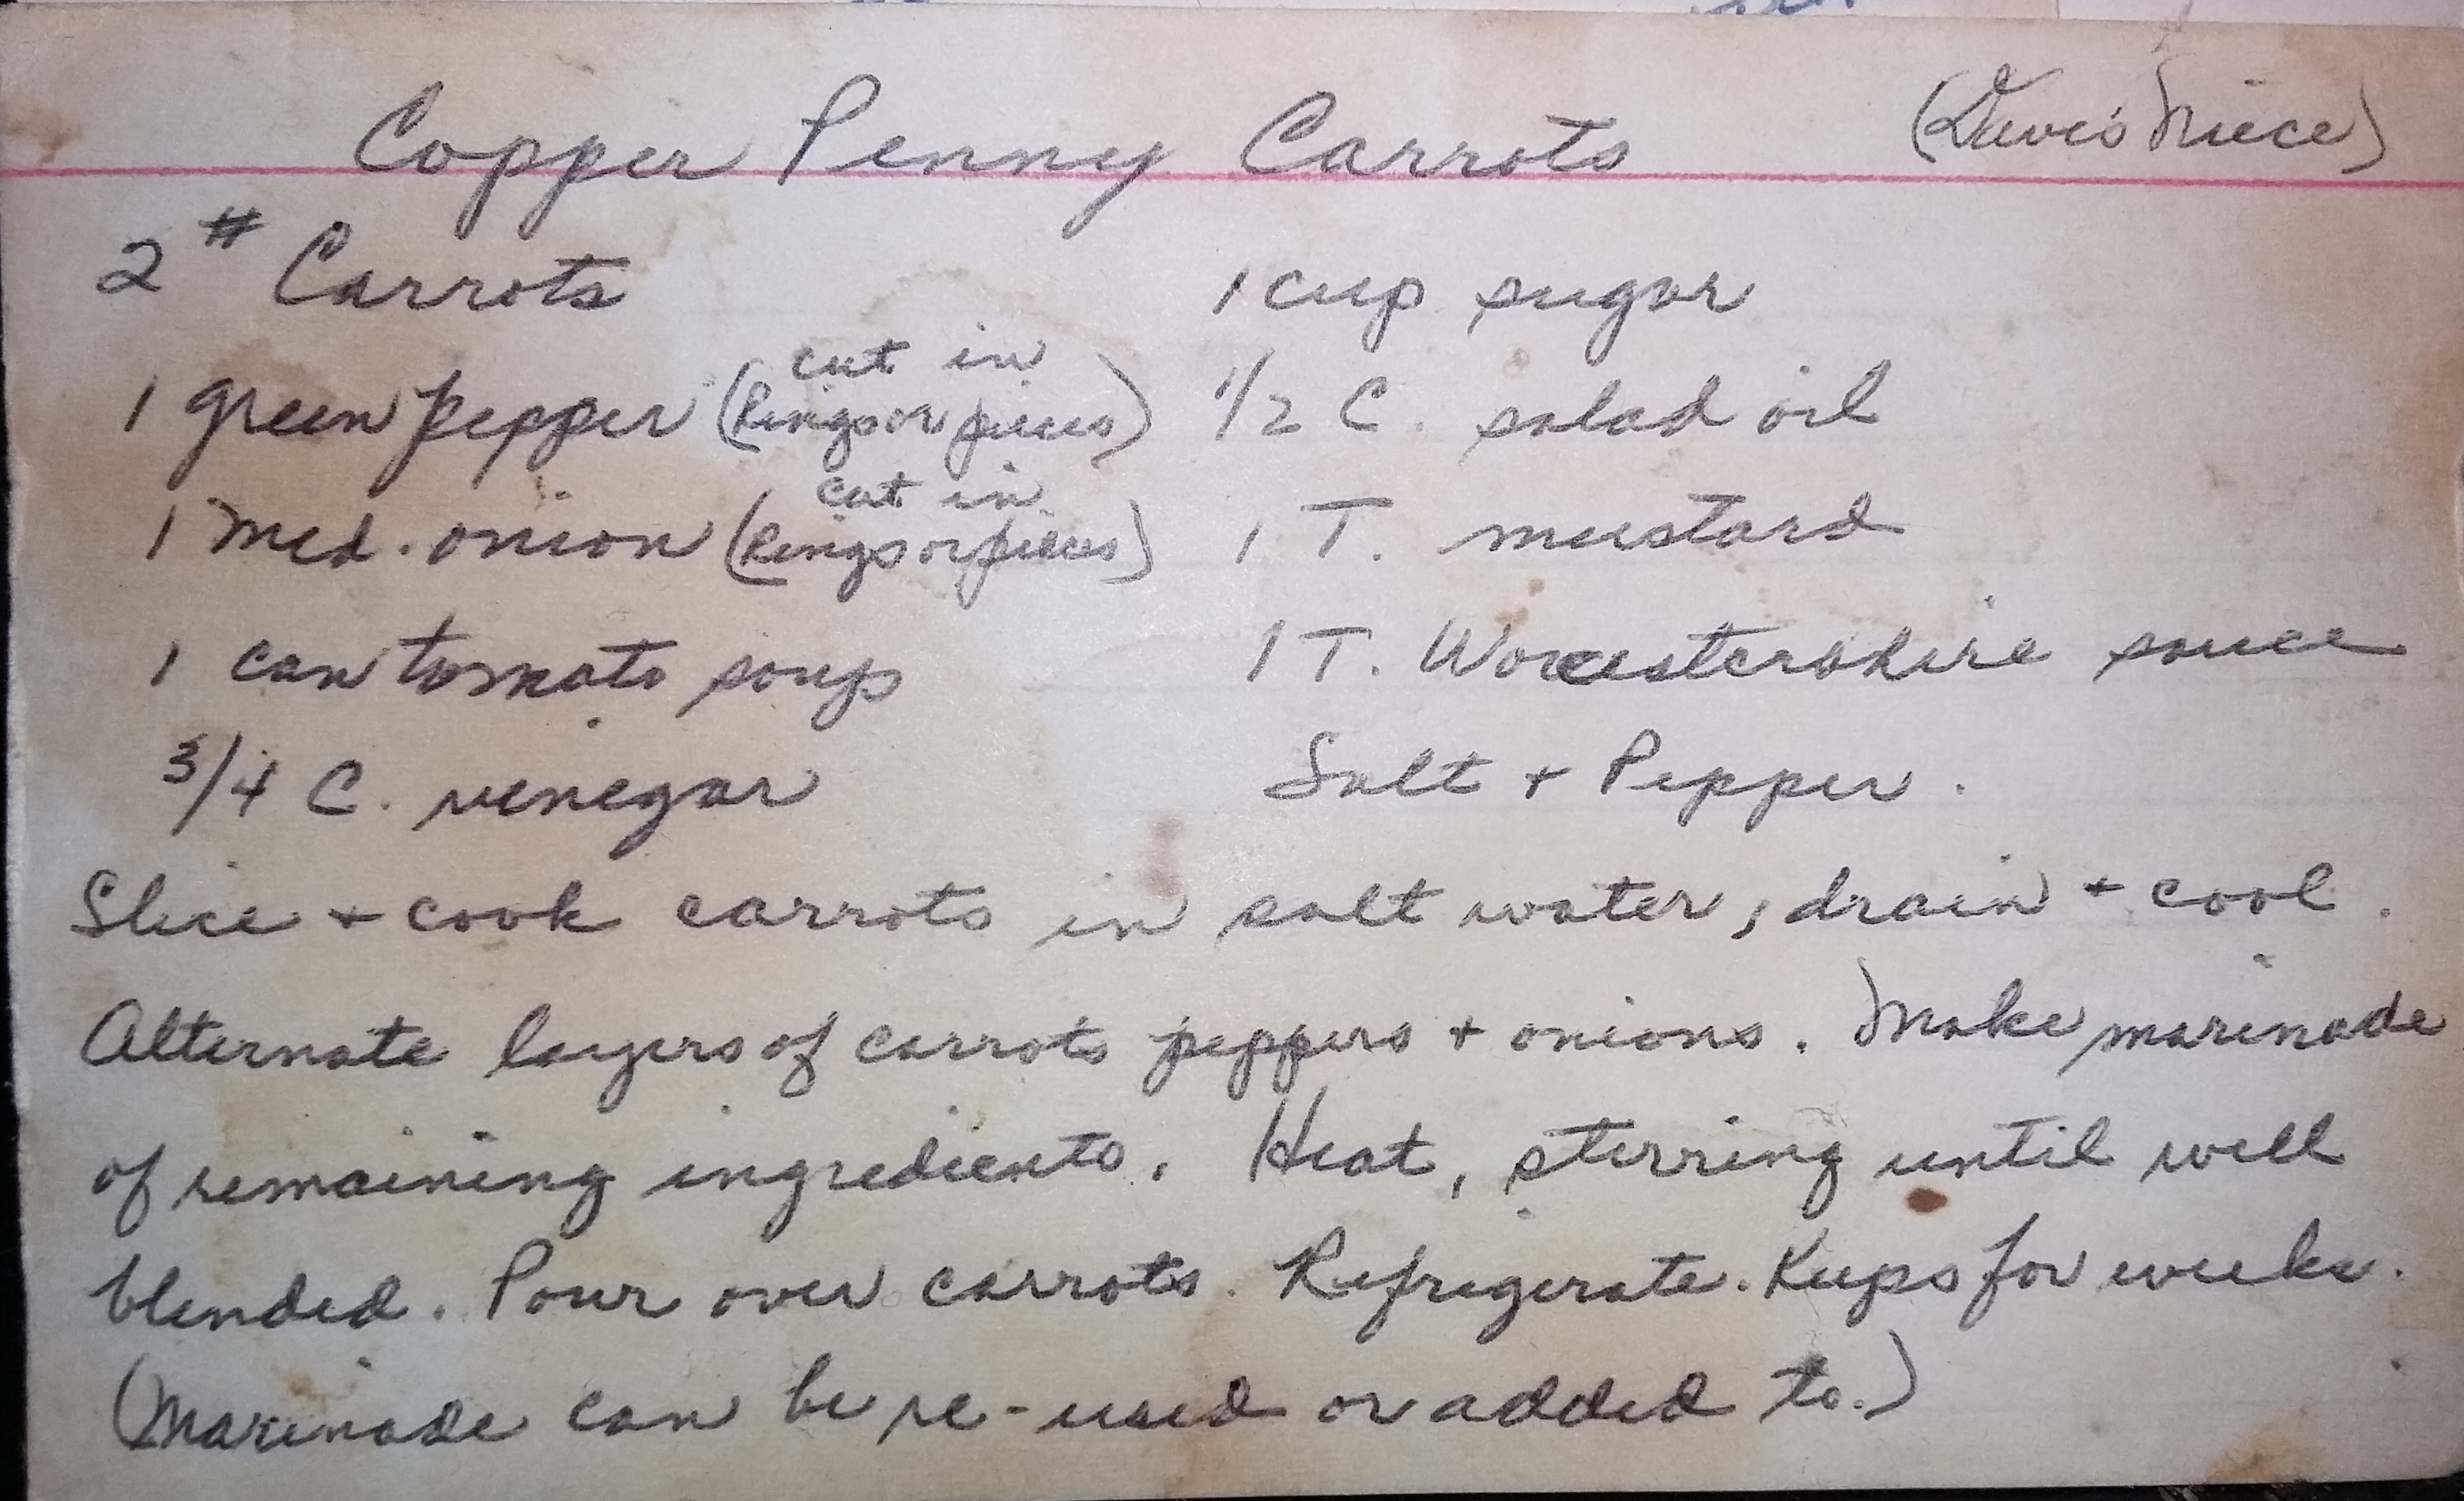 Copper Penny Carrots (Dave's Niece)
2 # Carrots
1 green pepper (cut in Rings or pieces)
1 med. onion (cut in Rings or pieces)
1 can tomato soup
3/4 C. vinegar
1 cup sugar
1/2 C. salad oil
1 T. mustard
1 T. Worcestershire sauce
Salt + Pepper.
Slice + cook carrots in salt water, drain + cool.
Alternate layers of carrots peppers + onions. Make marinade
of remaining ingredients. Heat, stirring until well
blended. Pour over carrots. Refrigerate. Keeps for weeks.
(Marinade can be re-used or added to.)